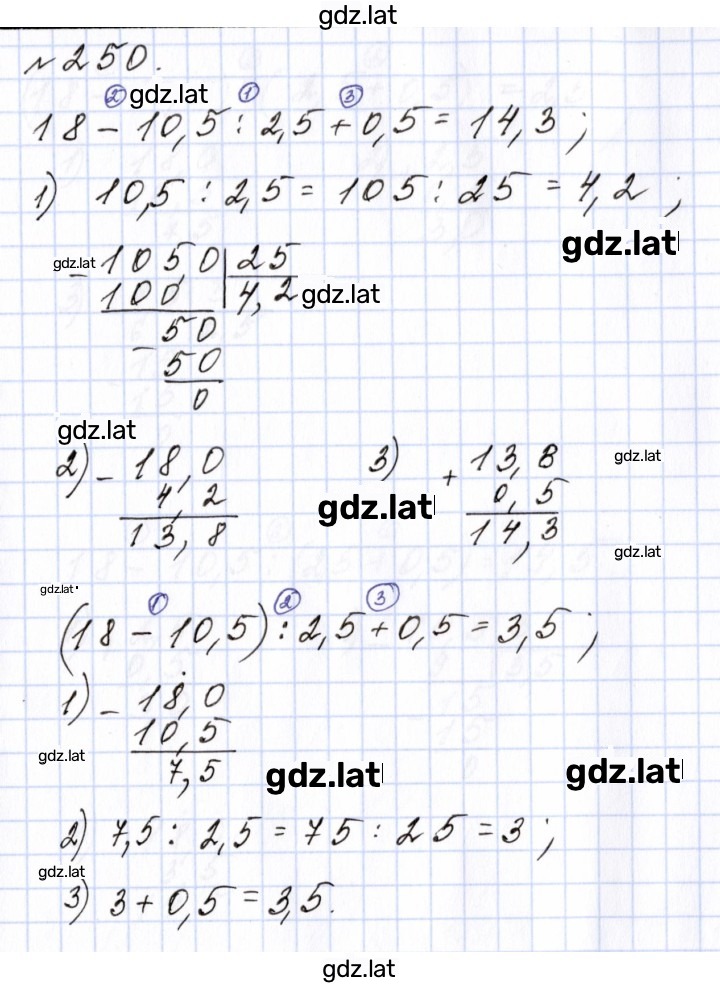 gdz.lat
№250.
② gdz.lat ① ③
18 - 10,5 : 2,5 + 0,5 = 14,3 ;
1) 10,5 : 2,5 = 105 : 25 = 4,2 ;
gdz.lat
gdz.lat - 105,0 | 25
100 4,2 gdz.lat
- 50
50
0
gdz.lat
2) - 18,0 3) + 13,8 gdz.lat
4,2 gdz.lat 0,5
13,8 14,3
gdz.lat
gdz.lat ① ② ③
(18 - 10,5) : 2,5 + 0,5 = 3,5 ;
1) - 18,0
10,5
gdz.lat 7,5 gdz.lat gdz.lat
2) 7,5 : 2,5 = 75 : 25 = 3 ;
gdz.lat
3) 3 + 0,5 = 3,5.
gdz.lat